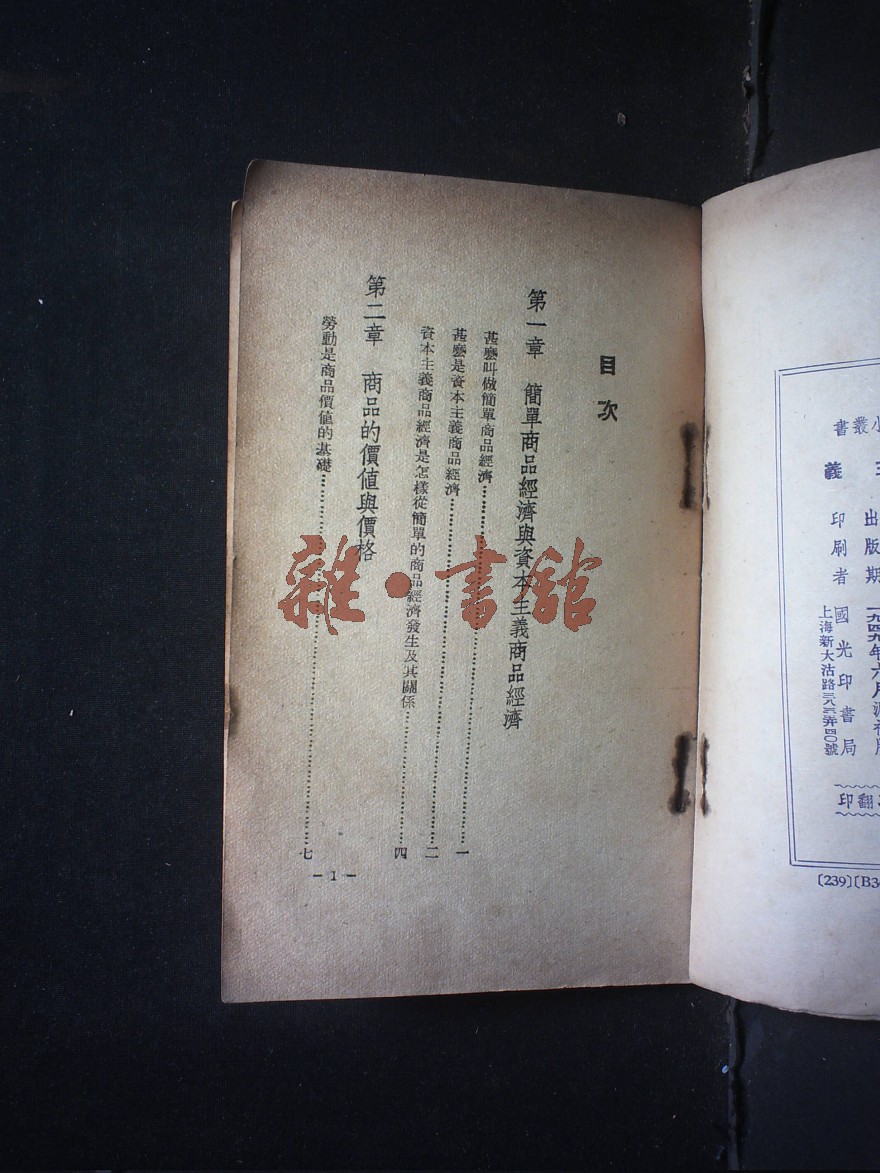 目次
第一章 簡單商品經濟與資本主義商品經濟
甚麽叫做簡單商品經濟……一
甚麽是資本主義商品經濟……二
資本主義商品經濟是怎樣從簡單的商品經濟發生及其關係……四
第二章 商品的價值與價格
勞動是商品價值的基礎……七
— 1 —
雜·書館
小叢書
主義
出版期 一九四九年六月
印刷者 國光印書局
上海新大沽路
翻印
〔239〕〔B3